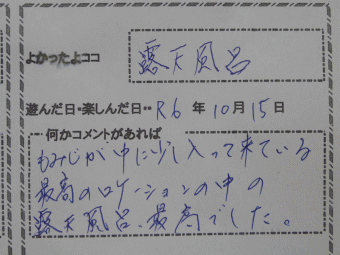 よかったよココ 露天風呂
遊んだ日・楽しんだ日・・ R6 年 10月 15日
何かコメントがあれば
もみじが中に少し入って来ている
最高のロケーションの中の
露天風呂、最高でした。